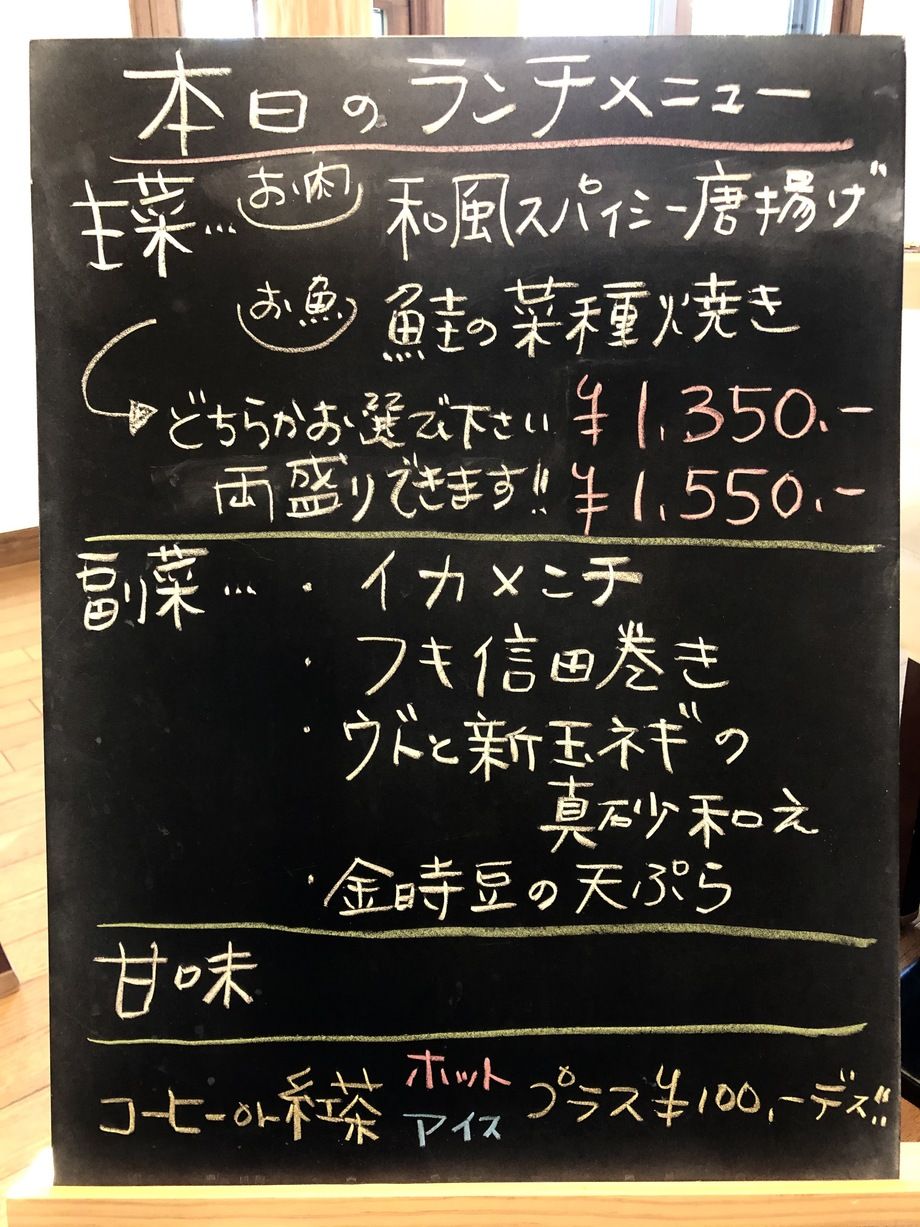 本日のランチメニュー
主菜… お肉 和風スパイシー唐揚げ
お魚 鮭の菜種焼き
どちらかお選び下さい ¥1,350.-
両盛りできます!! ¥1,550.-
副菜… ・イカメンチ
・フキ信田巻き
・ウドと新玉ネギの
真砂和え
・金時豆の天ぷら
甘味
コーヒーor紅茶 ホット アイス プラス¥100.-デス!!